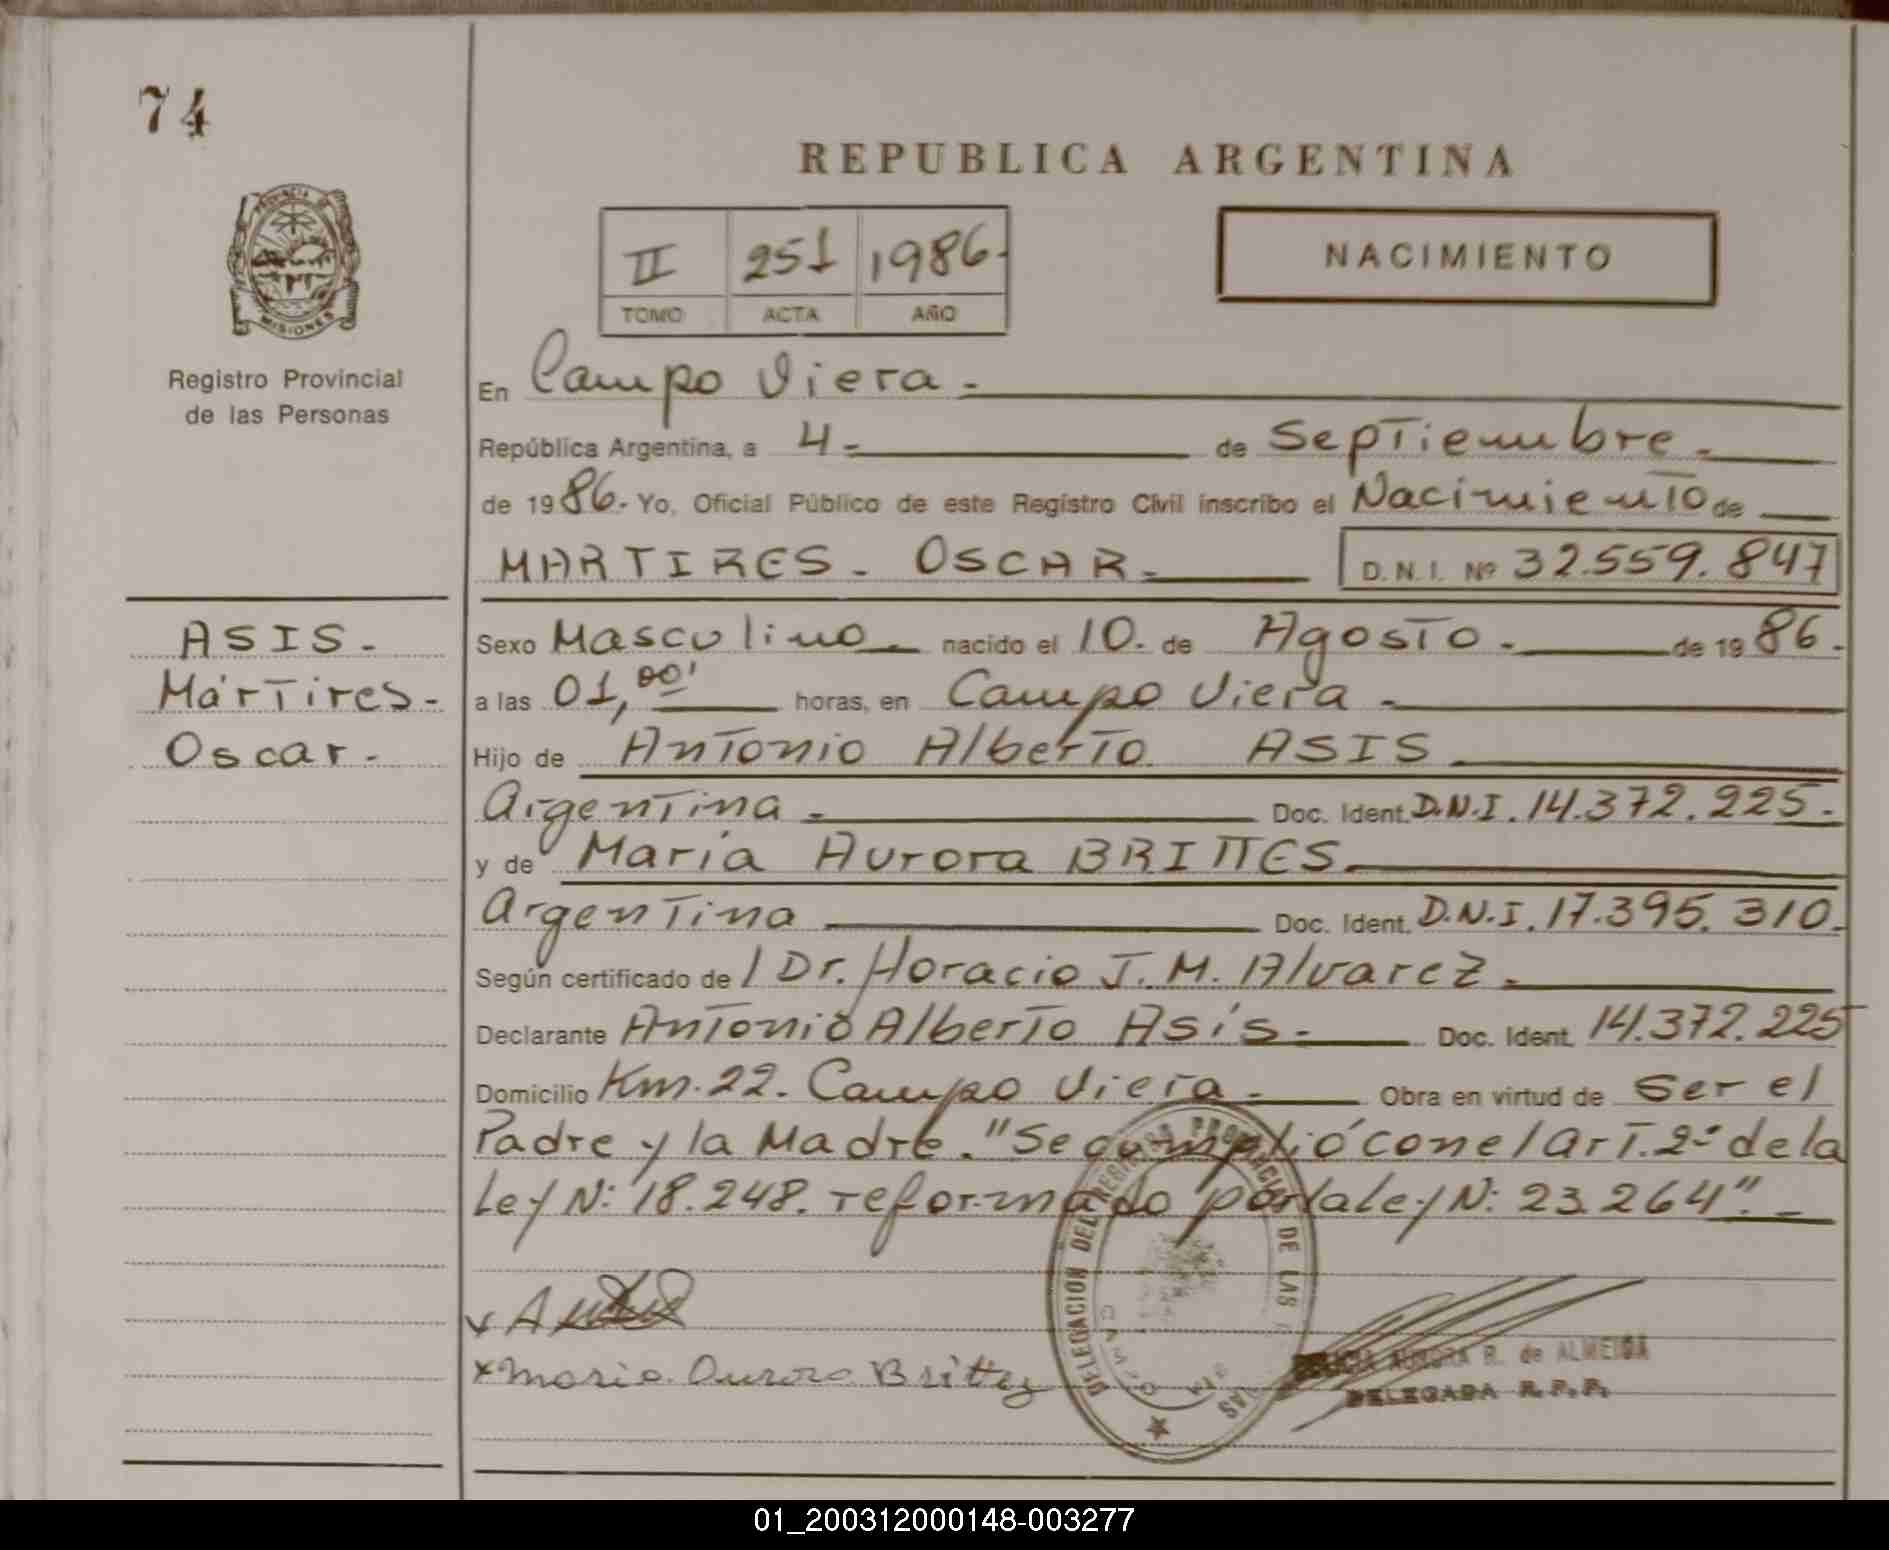 74
REPUBLICA ARGENTINA
PROVINCIA DE
MISIONES
Registro Provincial
de las Personas
II 251 1986.
TOMO ACTA AÑO
NACIMIENTO
En Campo Viera.
República Argentina, a 4. de Septiembre.
de 1986. Yo, Oficial Público de este Registro Civil inscribo el Nacimiento de
MARTIRES. OSCAR. D.N.I. Nº 32.559.847
ASIS.
Mártires.
Oscar.
Sexo Masculino. nacido el 10. de Agosto. de 1986.
a las 01,00' horas, en Campo Viera.
Hijo de Antonio Alberto ASIS
Argentina. Doc. Ident. D.N.I. 14.372.225.
y de María Aurora BRITTES.
Argentina Doc. Ident. D.N.I. 17.395.310.
Según certificado de l Dr. Horacio J. M. Alvarez.
Declarante Antonio Alberto Asís. Doc. Ident. 14.372.225
Domicilio Km. 22. Campo Viera. Obra en virtud de Ser el
Padre y la Madre. "Se cumplió con el art. 2º de la
Ley N: 18.248. reformado por la ley N: 23.264".
DELEGACION DEL REGISTRO PROVINCIAL DE LAS
x
x Maria Aurora Brittez
AURORA R. de ALMEIDA
DELEGADA R.P.P.
01_200312000148-003277